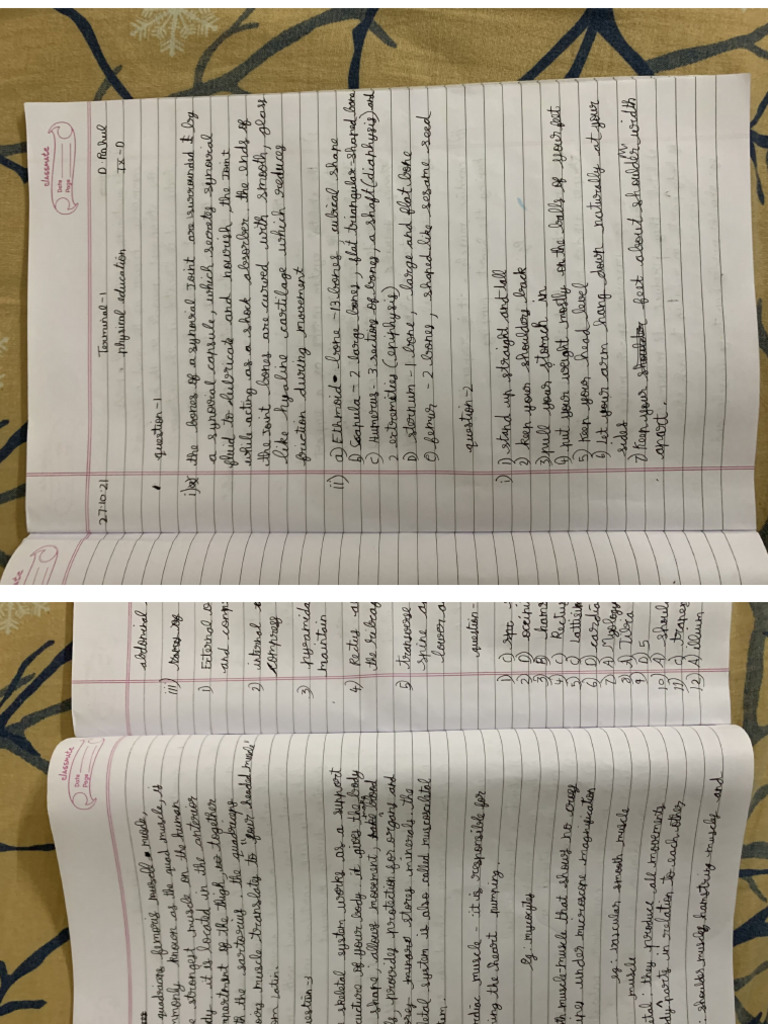 classmate
Date
Page
27.10.21
Terminal-1
D Rahul
physical education
IX-D
question-1
i) a) the bones of a synovial Joint are surrounded by
a synovial capsule, which secretes synovial
fluid to lubricate and nourish the Joint
while acting as a shock absorber the ends of
the Joint bones are curved with smooth, glass
like hyaline cartilage which reduces
friction during movement
ii) a) Ethmoid bone - 13 bones, cubical shape
b) Scapula - 2 large bones, flat triangular-shaped bone
c) Humerus - 3 sections of bones, a shaft (diaphysis) and
2 extramities (eniphysis)
D) sternum - 1 bone, large and flat bone
e) femur - 2 bones, shaped like sesame seed
question-2
i) 1) stand up straight and tall
2) keep your shoulders back
3) pull your stomach in
4) put your weight mostly on the balls of your feet
5) keep your head level
6) let your arm hang down naturally at your
sides
7) keep your feet about shoulder width
apart.
abdominal
iii)
1) External o
and comp
2) internal
compress
3) pyramida
maintain
4) Rectus a
the
5) transverse
spine a
lower a
question-
1) C)
2) D) occipi
3) B) ham
4) C) Rectus
5) C) lattisim
6) D) cardia
7) A) Myology
8) A) Tibia
9) D) 5
10) A) shoul
11) C) trapez
12) A) illium
classmate
Date
Page
quadriceps femoris muscle,
mmonly known as the quad muscle, is
e strongest muscle on the human
dy. it is located in the anterior
mpartment of the thigh together
th the sartorius. the quadriceps
muscle translates to "four headed muscle"
om Latin.
uestion-3
skeletal system works as a support
ucture of your body. it gives the body
shape, allows movement,
s, provides protection for organs and
stores minerals. the
letal system is also called muscoskelital
tem.
rdiac muscle - it is responsible for
ing the heart pumping.
eg: myocytes
th muscle - muscle that shows no cross
ipes under microscope magnification
eg: vascular smooth muscle
muscle
etal they produce all movements
dy parts in relation to each other
shoulder muscles, hamstring muscles and